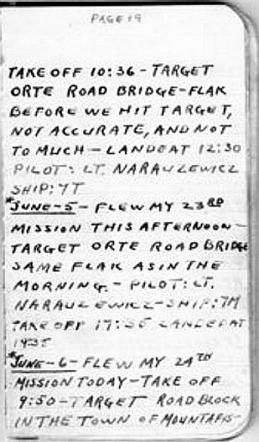 PAGE 19
TAKE OFF 10:36 - TARGET
ORTE ROAD BRIDGE - FLAK
BEFORE WE HIT TARGET,
NOT ACCURATE, AND NOT
TO MUCH - LANDE AT 12:30
PILOT: LT. NARAUZEWICZ
SHIP: 7T
*JUNE-5 - FLEW MY 23RD
MISSION THIS AFTERNOON -
TARGET ORTE ROAD BRIDGE
SAME FLAK AS IN THE
MORNING. - PILOT: LT.
NARAUZEWICZ - SHIP: 7M
TAKE OFF LANDED AT
*JUNE-6 - FLEW MY 24TH
MISSION TODAY - TAKE OFF
9:50 - TARGET ROAD BLOCK
IN THE TOWN OF